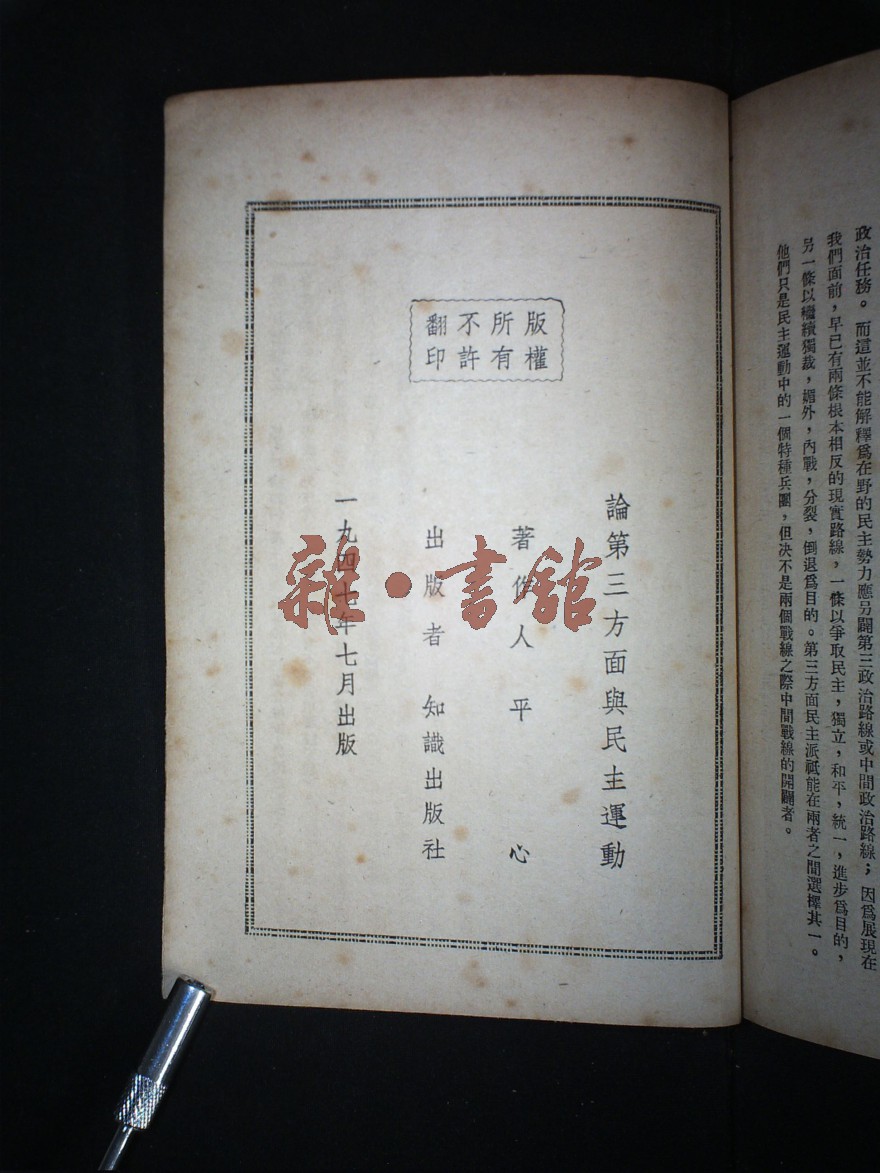 政治任務。而這並不能解釋爲在野的民主勢力應另闢第三政治路線或中間政治路線；因爲展現在
我們面前，早已有兩條根本相反的現實路線，一條以爭取民主，獨立，和平，統一，進步爲目的，
另一條以繼續獨裁，媚外，內戰，分裂，倒退爲目的。第三方面民主派祇能在兩者之間選擇其一。
他們只是民主運動中的一個特種兵團，但决不是兩個戰線之際中間戰線的開闢者。
版權
所有
不許
翻印
論第三方面與民主運動
著作人 平 心
出版者 知識出版社
一九四七年七月出版
雜·書館